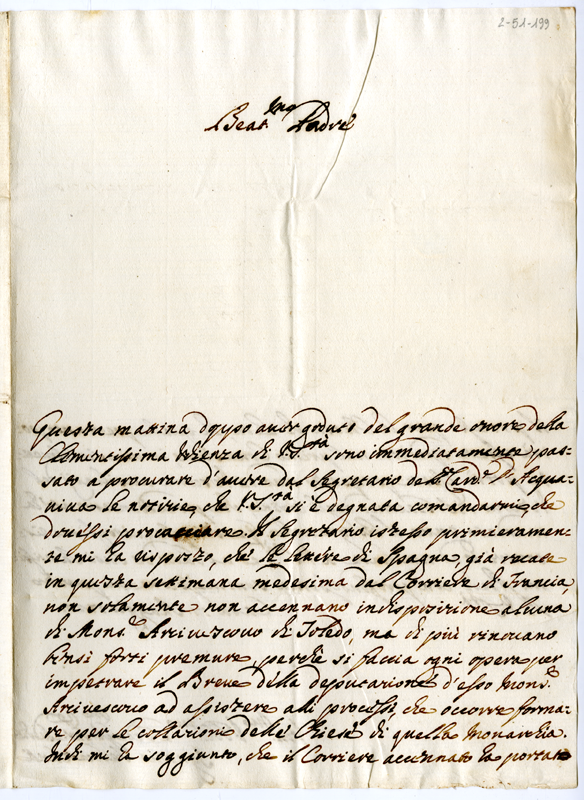 2-51-199
Beat.mo Padre
Questa mattina doppo aver goduto del grande onore della
Clementissima Udienza di V. S.tà sono immediatamente pas-
sato a procurare d'avere dal Segretario del Sr. Card.e d'Acqua-
viva le notizie, che V. S.tà si è degnata comandarmi, che
dovessi procacciare. Il Segretario istesso primieramen-
te mi ha risposto, che le lettere di Spagna, già recate
in questa settimana medesima dal Corriere di Francia,
non solamente non accennano indisposizione alcuna
di Mons.r Arcivescovo di Toledo, ma di più rinovano
bensì forti premure, perchè si faccia ogni opera per
impetrare il Breve della deputazione d'esso Mons.r
Arcivescovo ad assistere alli processi, che occorre forma-
re per le collazioni delle Chiese di quella Monarchia.
Indi mi ha soggiunto, che il Corriere accennato ha portato